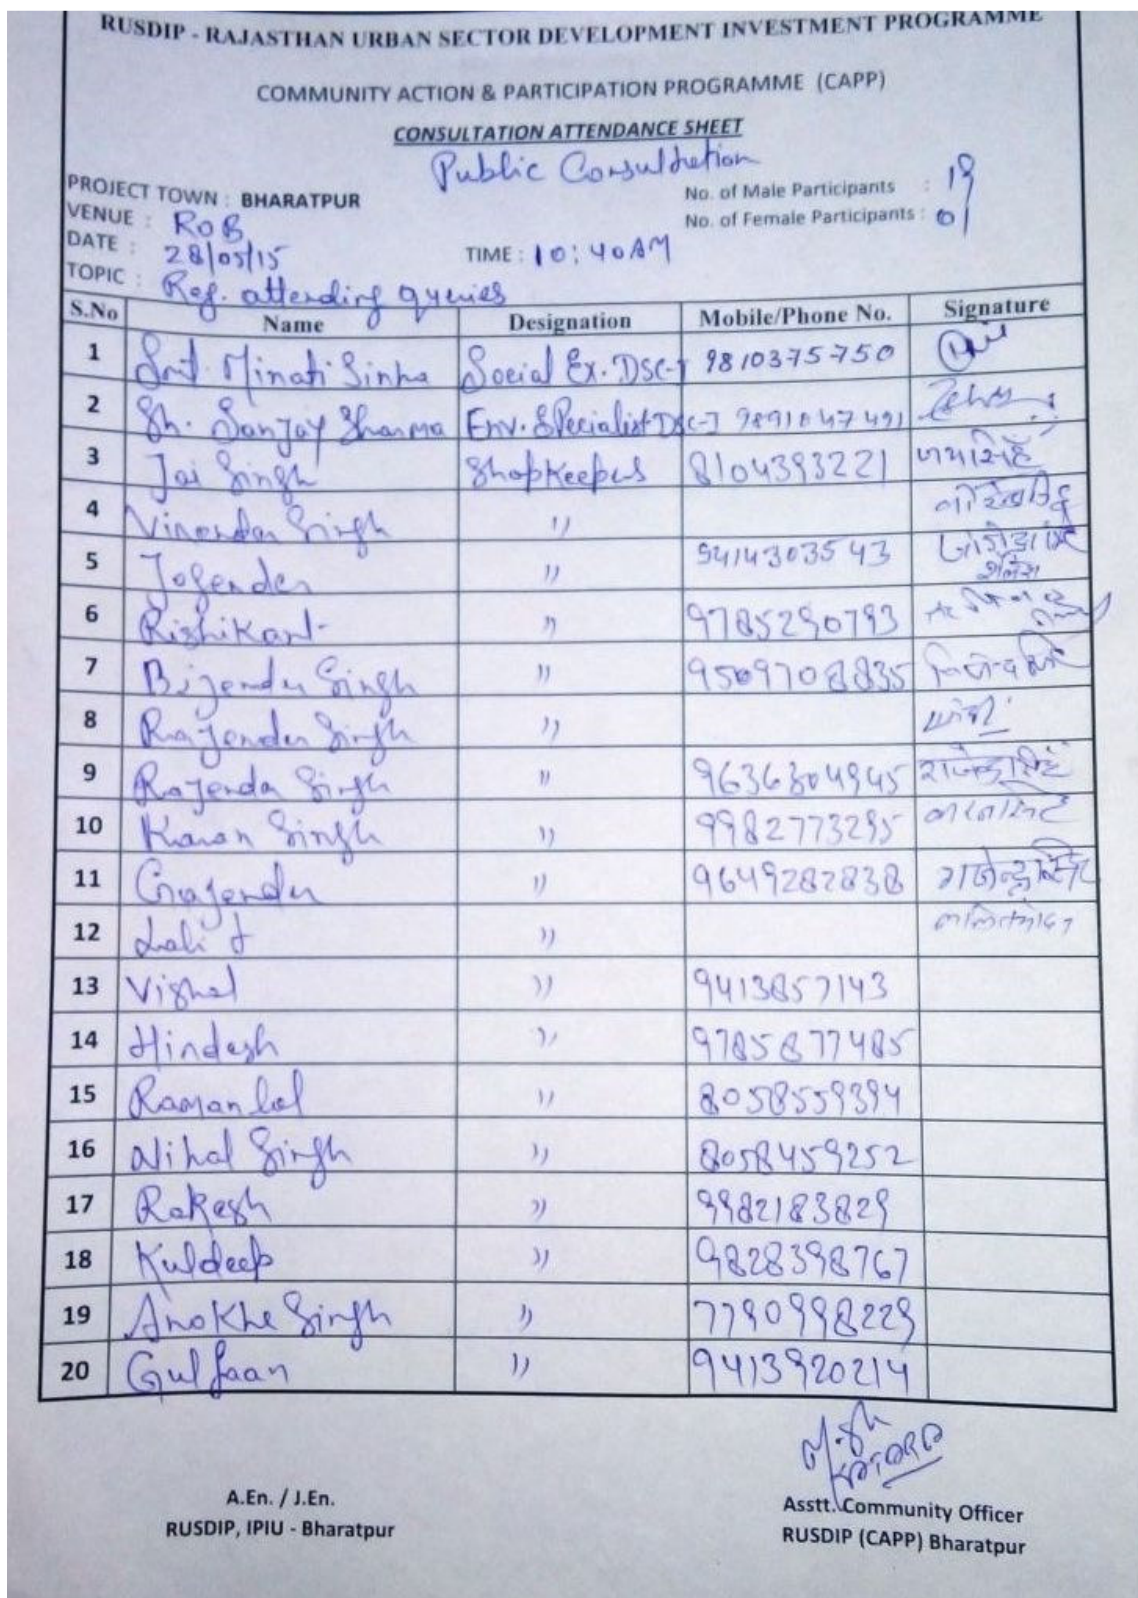 RUSDIP - RAJASTHAN URBAN SECTOR DEVELOPMENT INVESTMENT PROGRAMME
COMMUNITY ACTION & PARTICIPATION PROGRAMME (CAPP)
CONSULTATION ATTENDANCE SHEET
Public Consultation
PROJECT TOWN : BHARATPUR
No. of Male Participants : 19
VENUE : ROB
No. of Female Participants : 01
DATE : 28/05/15
TIME : 10:40AM
TOPIC : Reg. attending queries
S.No Name Designation Mobile/Phone No. Signature
1 Smt. Minati Sinha Social Ex. DSC-I 9810375750
2 Sh. Sanjay Sharma Env. Specialist DSC-I 9891847491
3 Jai Singh Shopkeepers 8104393221
4 Virendar Singh "
5 Jogender " 9414303543
6 Rishikant " 9785290793
7 Bijender Singh " 9509708835
8 Rajender Singh "
9 Rajenda Singh " 9636804945
10 Karan Singh " 9982773295
11 Gajender " 9649282838 गजेन्द्र सिंह
12 Lalit "
13 Vishal " 9413857143
14 Hindesh " 9785877485
15 Ramanlal " 8058559394
16 Nihal Singh " 8058459252
17 Rakesh " 9982183829
18 Kuldeep " 9828398767
19 Anokhe Singh " 7790998229
20 Gulfaan " 9413920214
A.En. / J.En.
RUSDIP, IPIU - Bharatpur
Asstt. Community Officer
RUSDIP (CAPP) Bharatpur